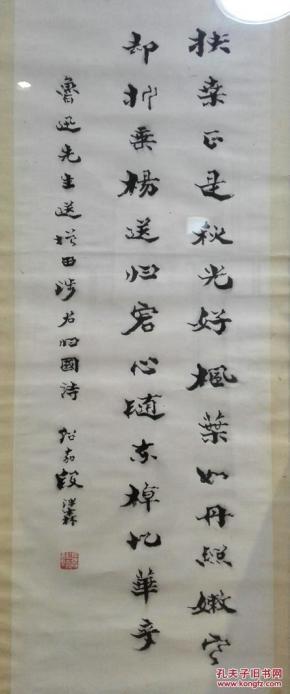 扶桑正是秋光好楓葉如丹照嫩寒
却折垂楊送归客心随东棹忆華年
魯迅先生送增田涉君归國诗 段
孔夫子旧书网